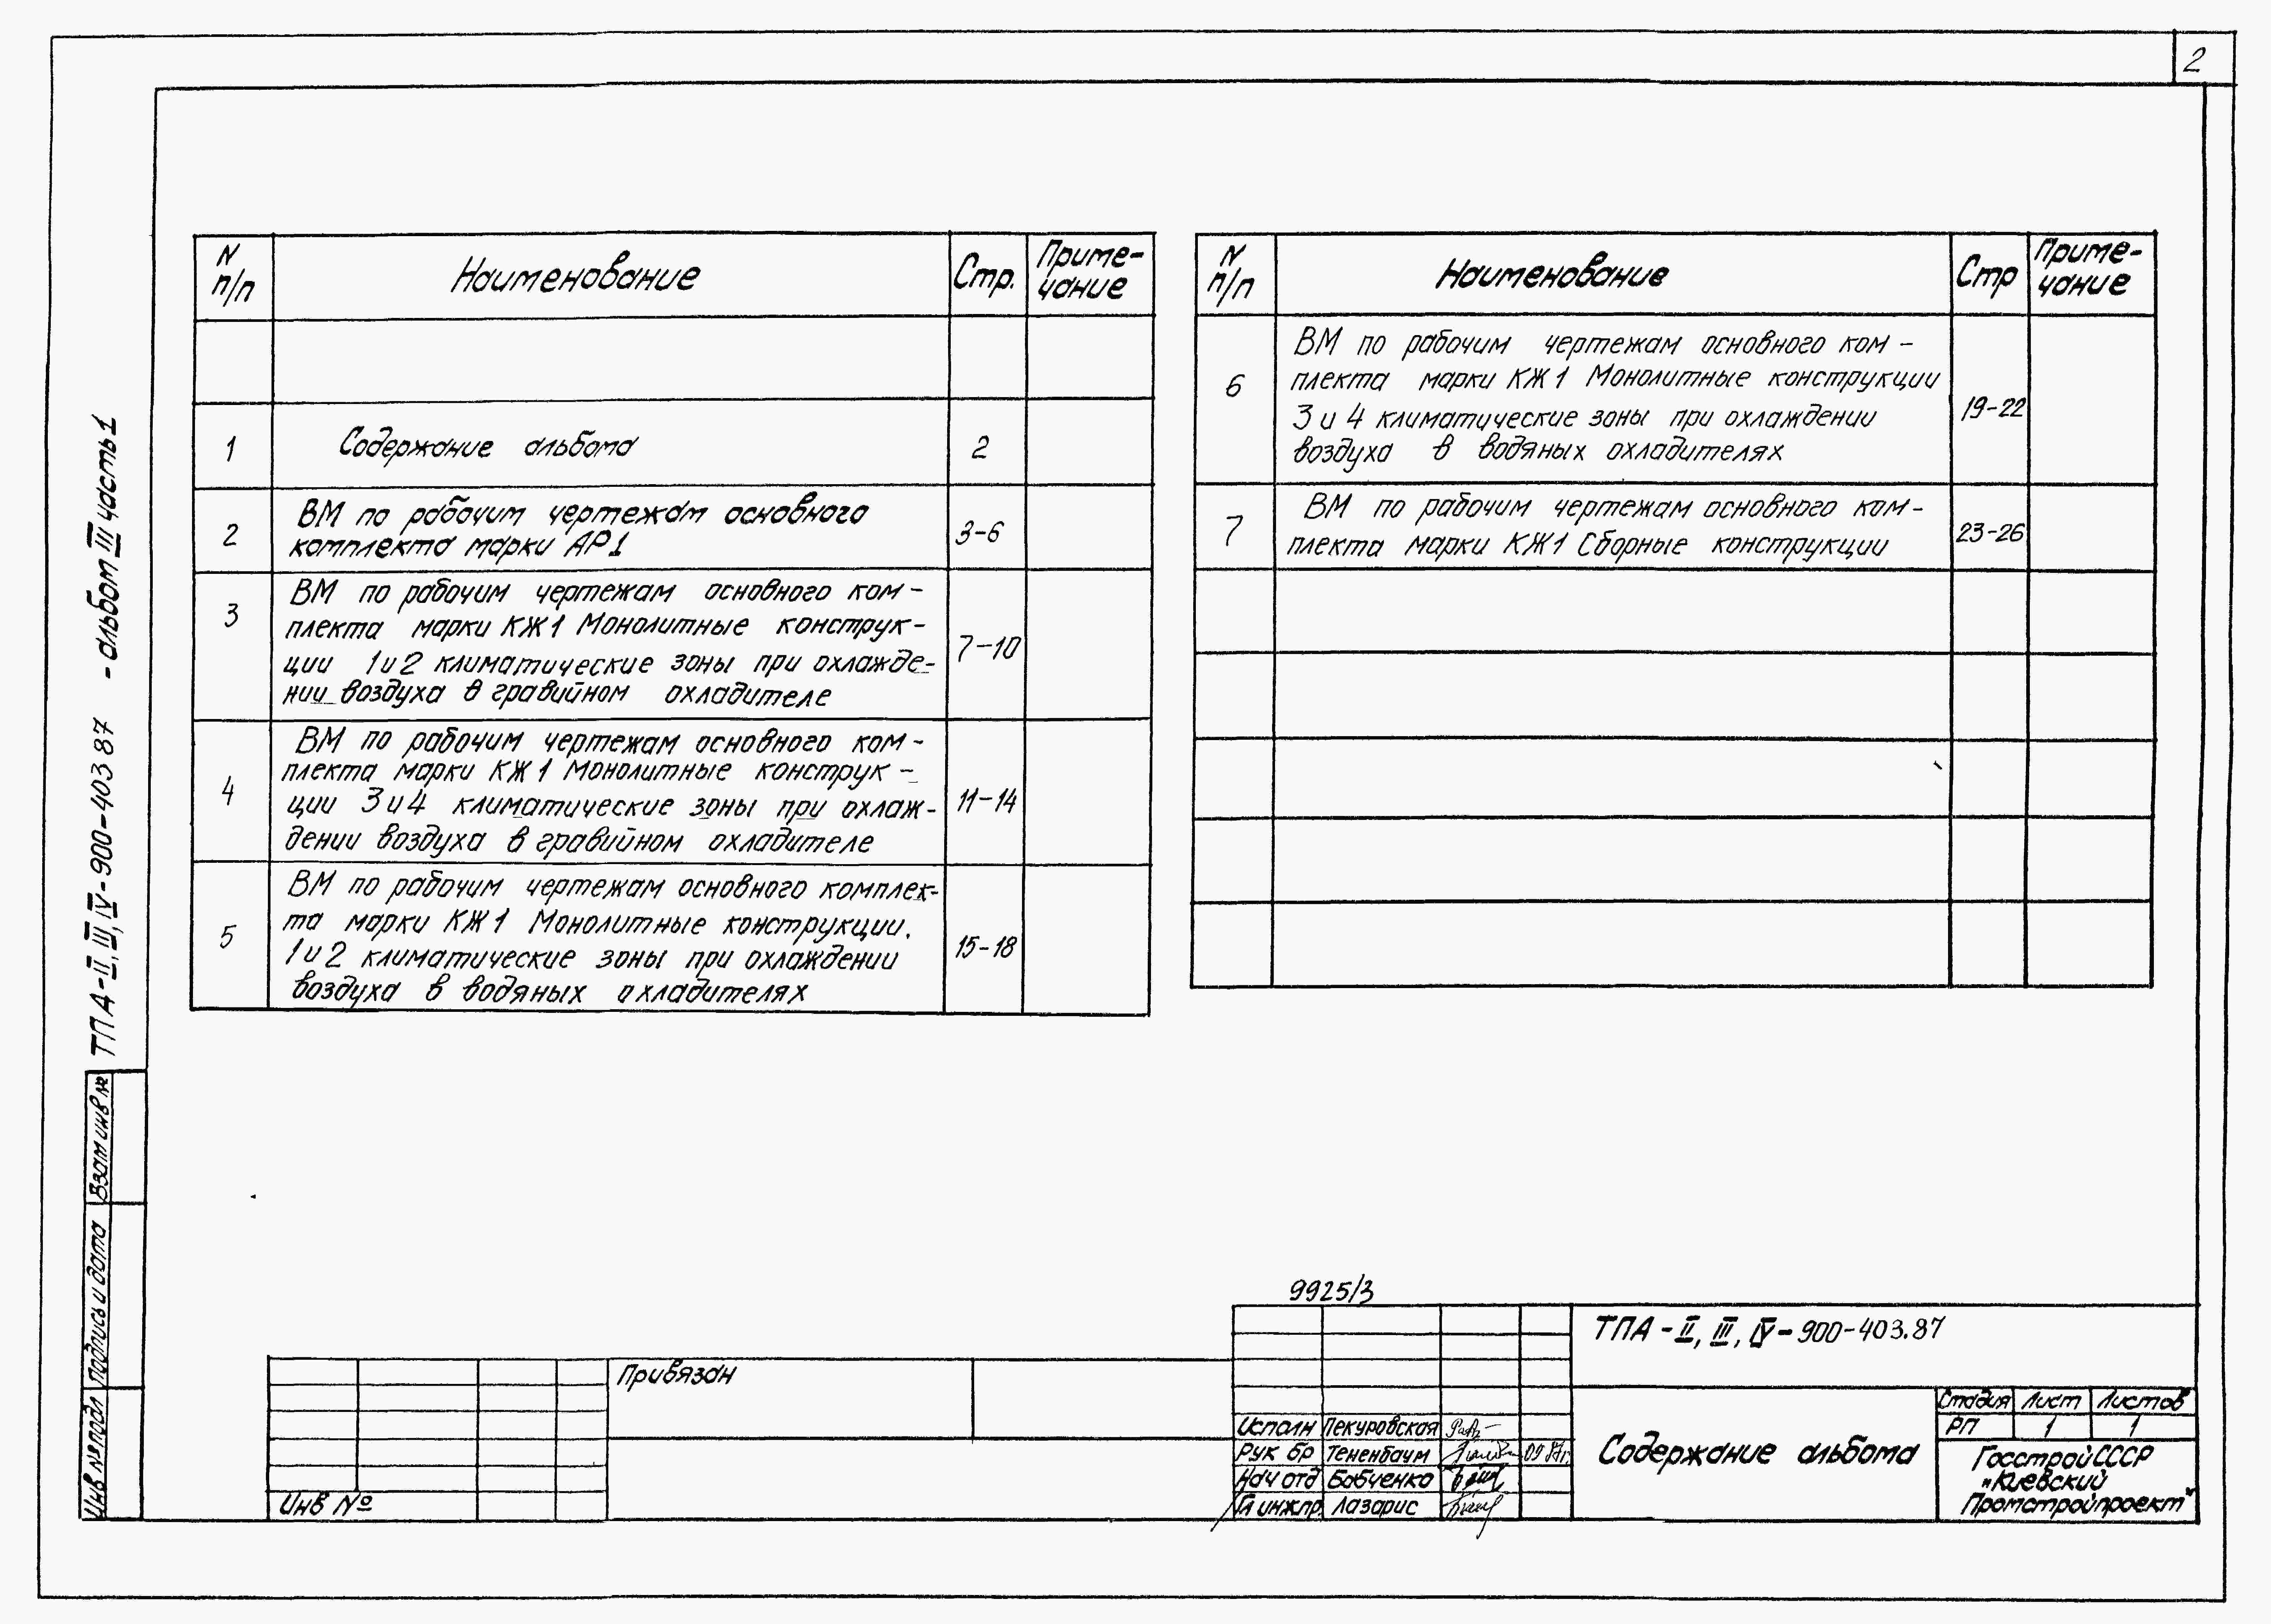 2
N п/п Наименование Стр. Приме-
чание
1 Содержание альбома 2
2 ВМ по рабочим чертежам основного
комплекта марки АР1 3-6
3 ВМ по рабочим чертежам основного ком-
плекта марки КЖ1 Монолитные конструк-
ции 1и2 климатические зоны при охлажде-
нии воздуха в гравийном охладителе 7-10
4 ВМ по рабочим чертежам основного ком-
плекта марки КЖ1 Монолитные конструк-
ции 3и4 климатические зоны при охлаж-
дении воздуха в гравийном охладителе 11-14
5 ВМ по рабочим чертежам основного комплек-
та марки КЖ1 Монолитные конструкции.
1и2 климатические зоны при охлаждении
воздуха в водяных охладителях 15-18
N п/п Наименование Стр Приме-
чание
6 ВМ по рабочим чертежам основного ком-
плекта марки КЖ1 Монолитные конструкции
3и4 климатические зоны при охлаждении
воздуха в водяных охладителях 19-22
7 ВМ по рабочим чертежам основного ком-
плекта марки КЖ1 Сборные конструкции 23-26
ТПА-II, III, IV-900-403 87 - альбом III часть1
Взам инв №
Подпись и дата
Инв № подл
Привязан
Инв №
9925/3
ТПА - II, III, IV - 900-403.87
Исполн Пекуровская
Рук бр Тененбаум 09 87г.
Нач отд Бабченко
Гл инж пр. Лазарис
Содержание альбома
Стадия Лист Листов
РП 1 1
Госстрой СССР
„Киевский
Промстройпроект"